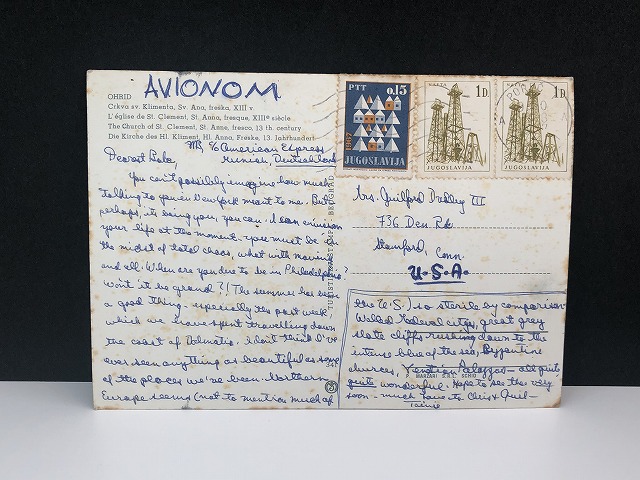 AVIONOM
OHRID
Crkva sv. Klimenta, Sv. Ana, freska, XIII v.
L'église de St. Clement, St. Anne, fresque, XIIIe siècle
The Church of St. Clement, St. Anne, fresco, 13 th. century
Die Kirche des Hl. Kliment, Hl. Anna, Freske, 13. Jahrhundert
% American Express
Munich, Deutschland
Dearest
You can't possibly imagine how much
talking to you in New York meant to me. But
perhaps, its being you, you can. I can envision
your life at the moment. You must be in
the midst of total chaos, what with moving
and all. When are you due to be in Philadelphia?
Won't it be grand?! The summer has been
a good thing - especially the past week
which we have spent travelling down
the coast of Dalmatia. I don't think I've
ever seen anything as beautiful as some
of the places we've been. Northern
Europe seems (not to mention much of
the U.S.) so sterile by comparison.
Walled feudal citys, great grey
slate cliffs rushing down to the
intense blue of the sea, Byzantine
churches, Venetian Palazzos - all quite,
quite wonderful. Hope to see you very
soon - much love to Chris & Guil-
PTT 0.15
1967
JUGOSLAVIJA
1D
JUGOSLAVIJA
1D
JUGOSLAVIJA
Mrs. Guilford Dudley III
736 Den Rd.
Stamford,
Conn.
U.S.A.
BEOGRAD
341
2
P. MARZARI S.R.L. SCHIO